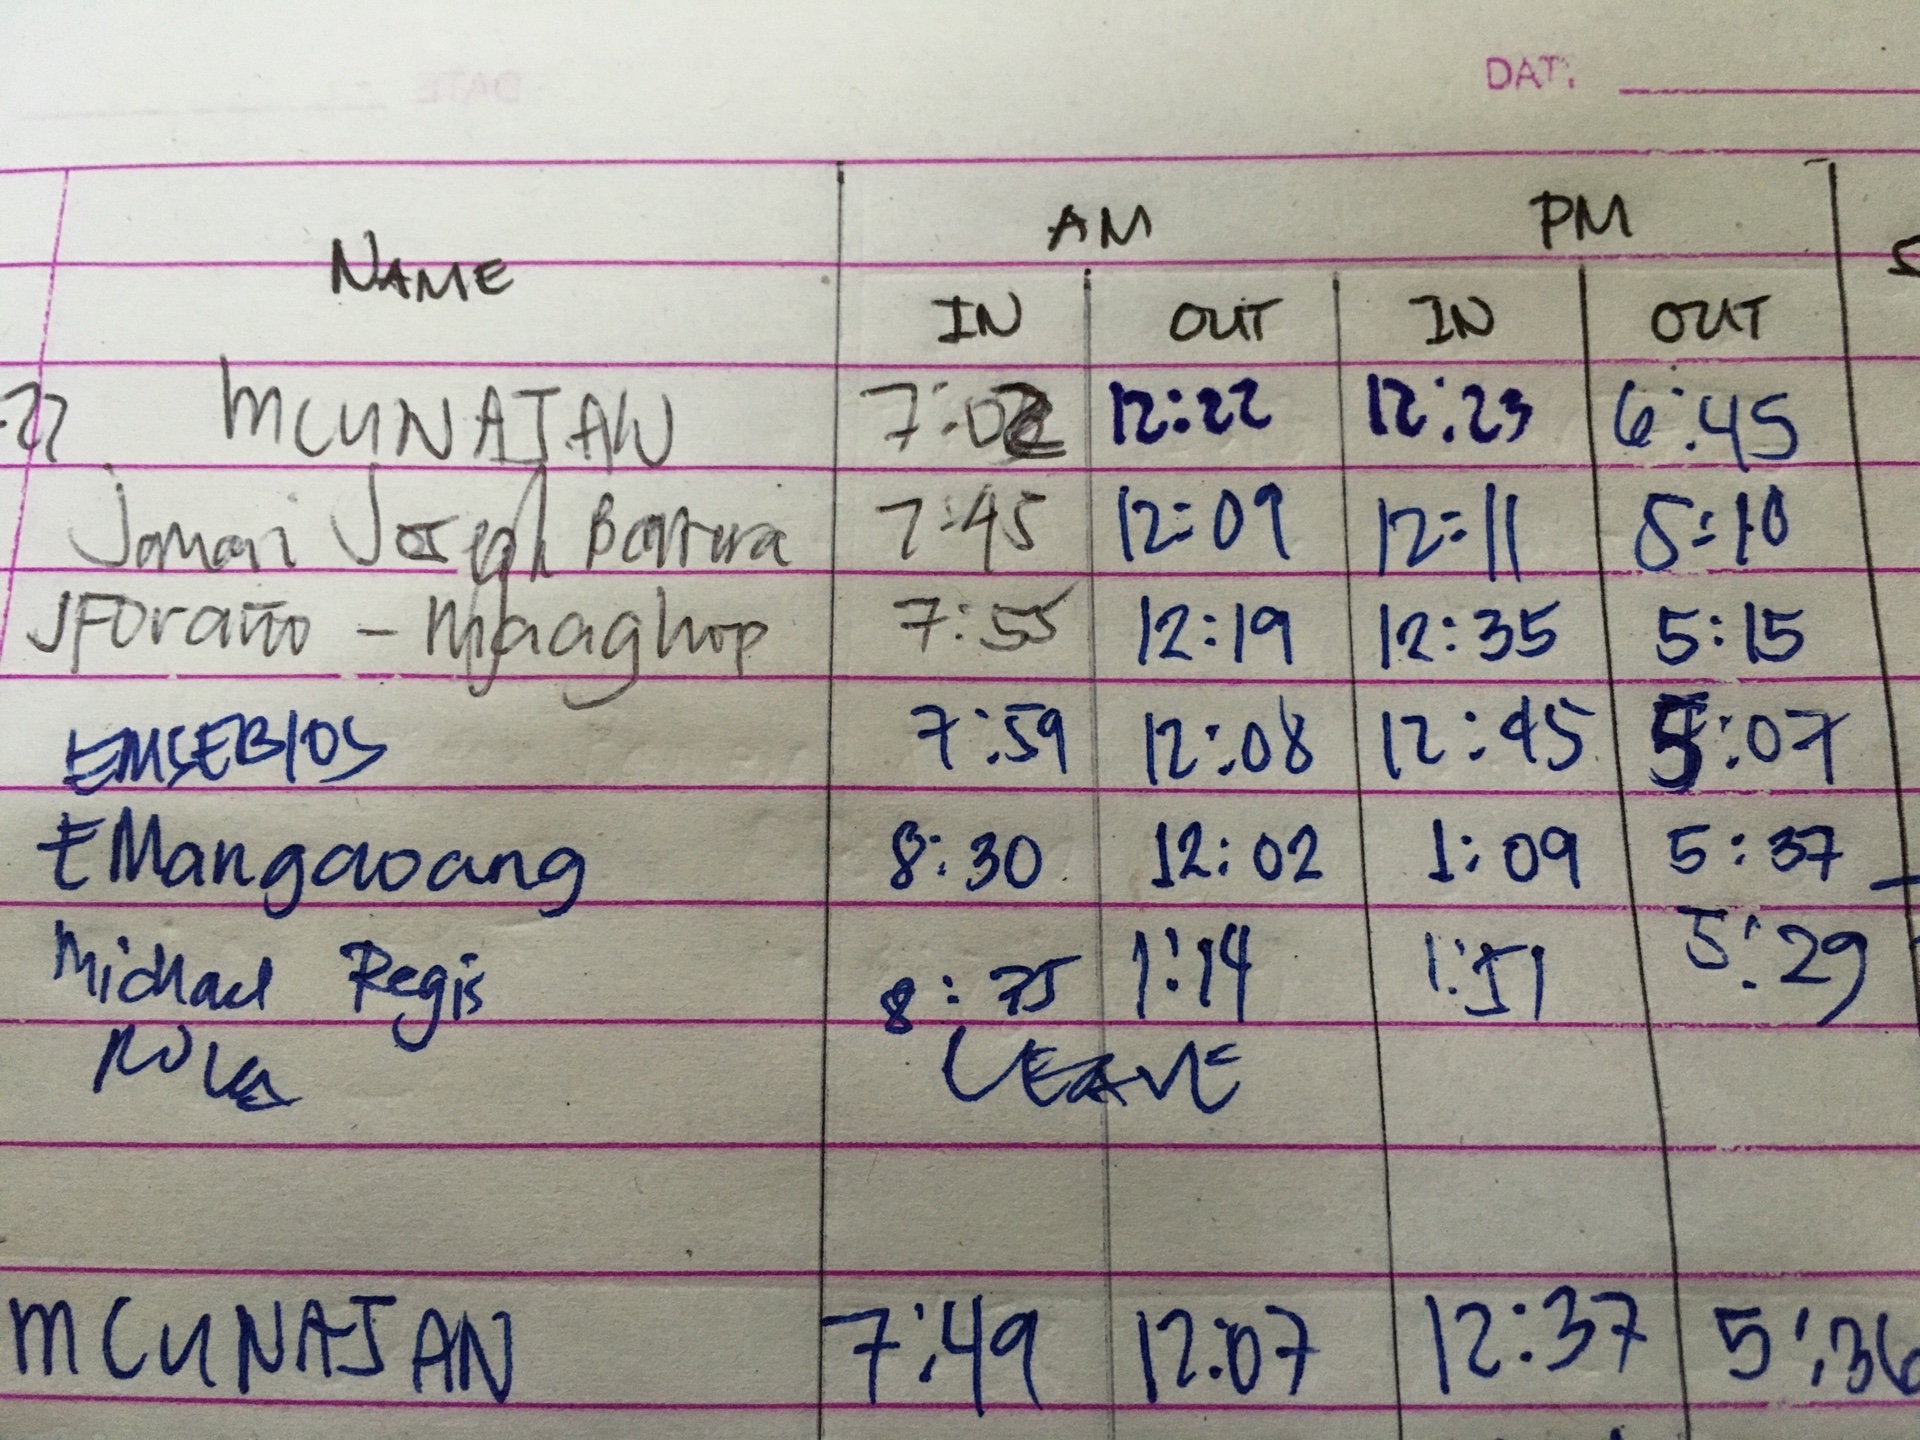 DATE
NAME AM PM
IN OUT IN OUT
MCUNAJAN 7:02 12:22 12:23 6:45
Joseph 7:45 12:09 12:11 5:10
7:55 12:19 12:35 5:15
EMSEBIOS 7:59 12:08 12:45 5:07
EMangaoang 8:30 12:02 1:09 5:37
Michael Regis 1:14 1:51 5:29
LEAVE
MCUNAJAN 7:49 12:07 12:37 5:36